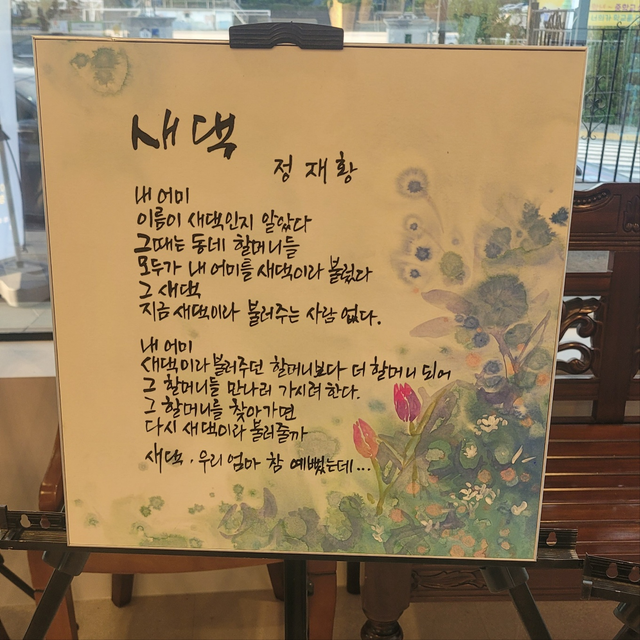 새댁
정재황
내 어미
이름이 새댁인지 알았다
그때는 동네 할머니들
모두가 내 어미를 새댁이라 불렀다
그 새댁
지금 새댁이라 불러주는 사람 없다.
내 어미
새댁이라 불러주던 할머니보다 더 할머니 되어
그 할머니들 만나러 가시려 한다.
그 할머니를 찾아가면
다시 새댁이라 불러줄까
새댁. 우리 엄마 참 예뻤는데...